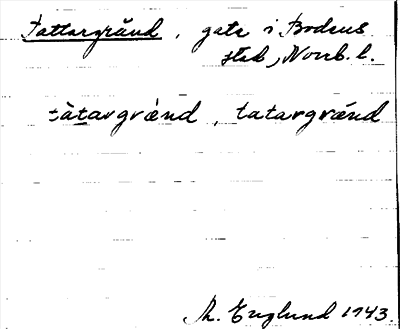 Tattargränd, gata i Bodens
stad, Norrb. l.
tàtargrén̂d, tatargränd
Th. Englund 1943.